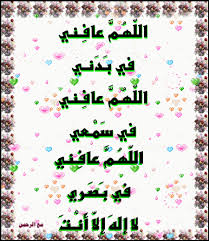 اللّهمَّ عافني
في بَدَني
اللّهمَّ عافني
في سَمْعي
اللّهمَّ عافني
في بَصَري
لا إله إلا أنْتَ
مع الرحمن